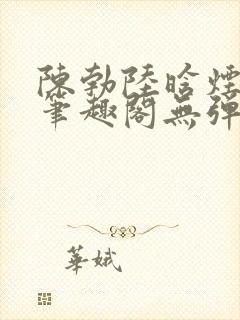 陳勃陸晗煙
筆趣閣無彈
華娥